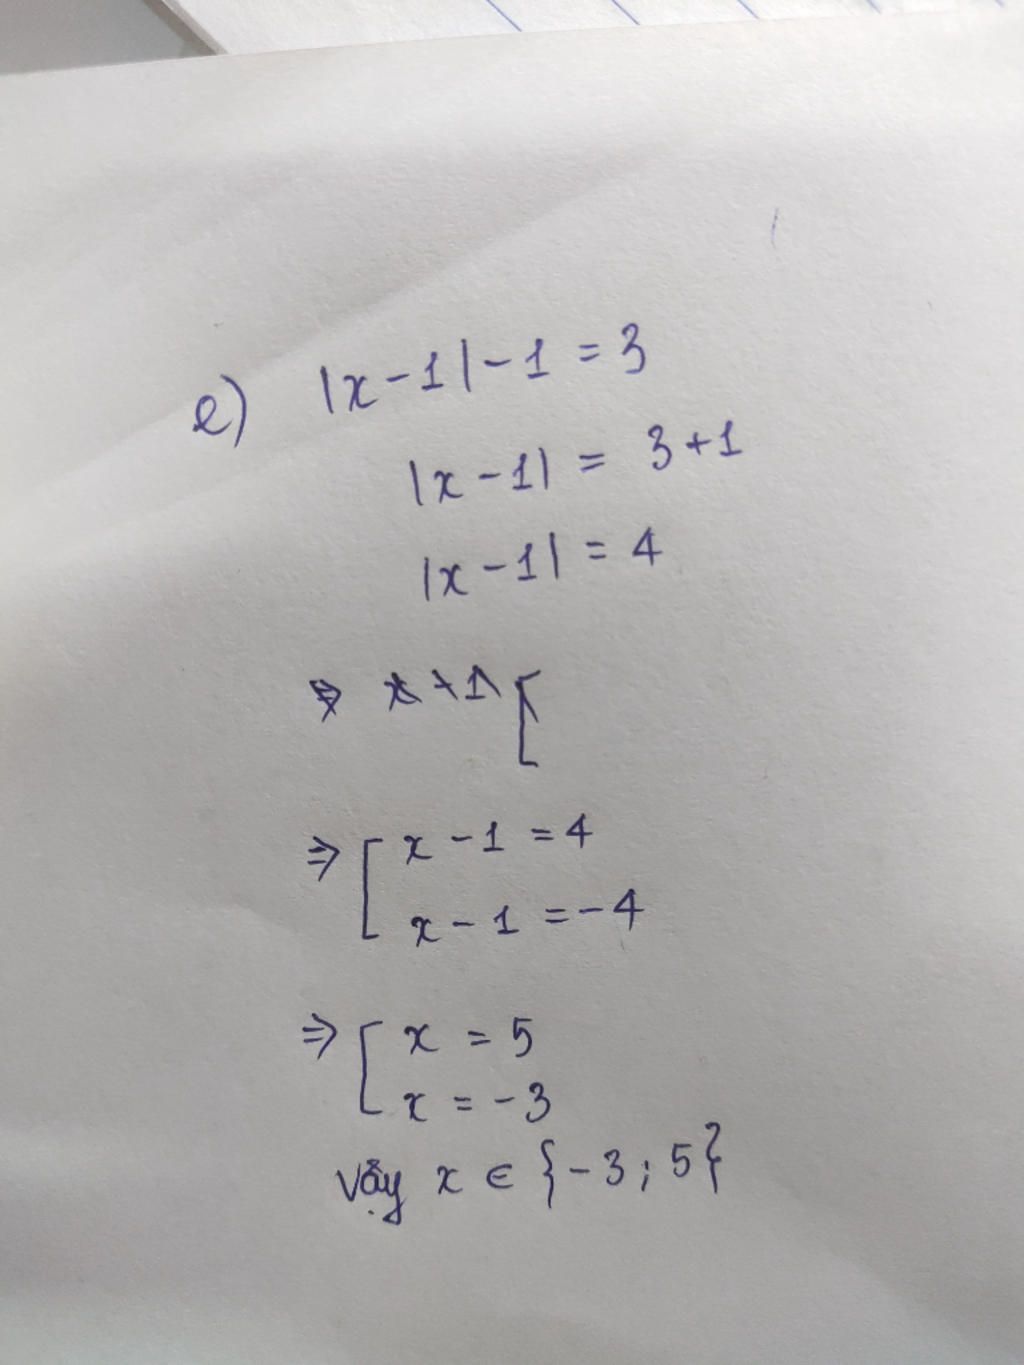 e) |x - 1| - 1 = 3
|x - 1| = 3 + 1
|x - 1| = 4
⇒ x + 1 [
⇒ [ x - 1 = 4
x - 1 = -4
⇒ [ x = 5
x = -3
Vậy x ∈ {-3; 5}